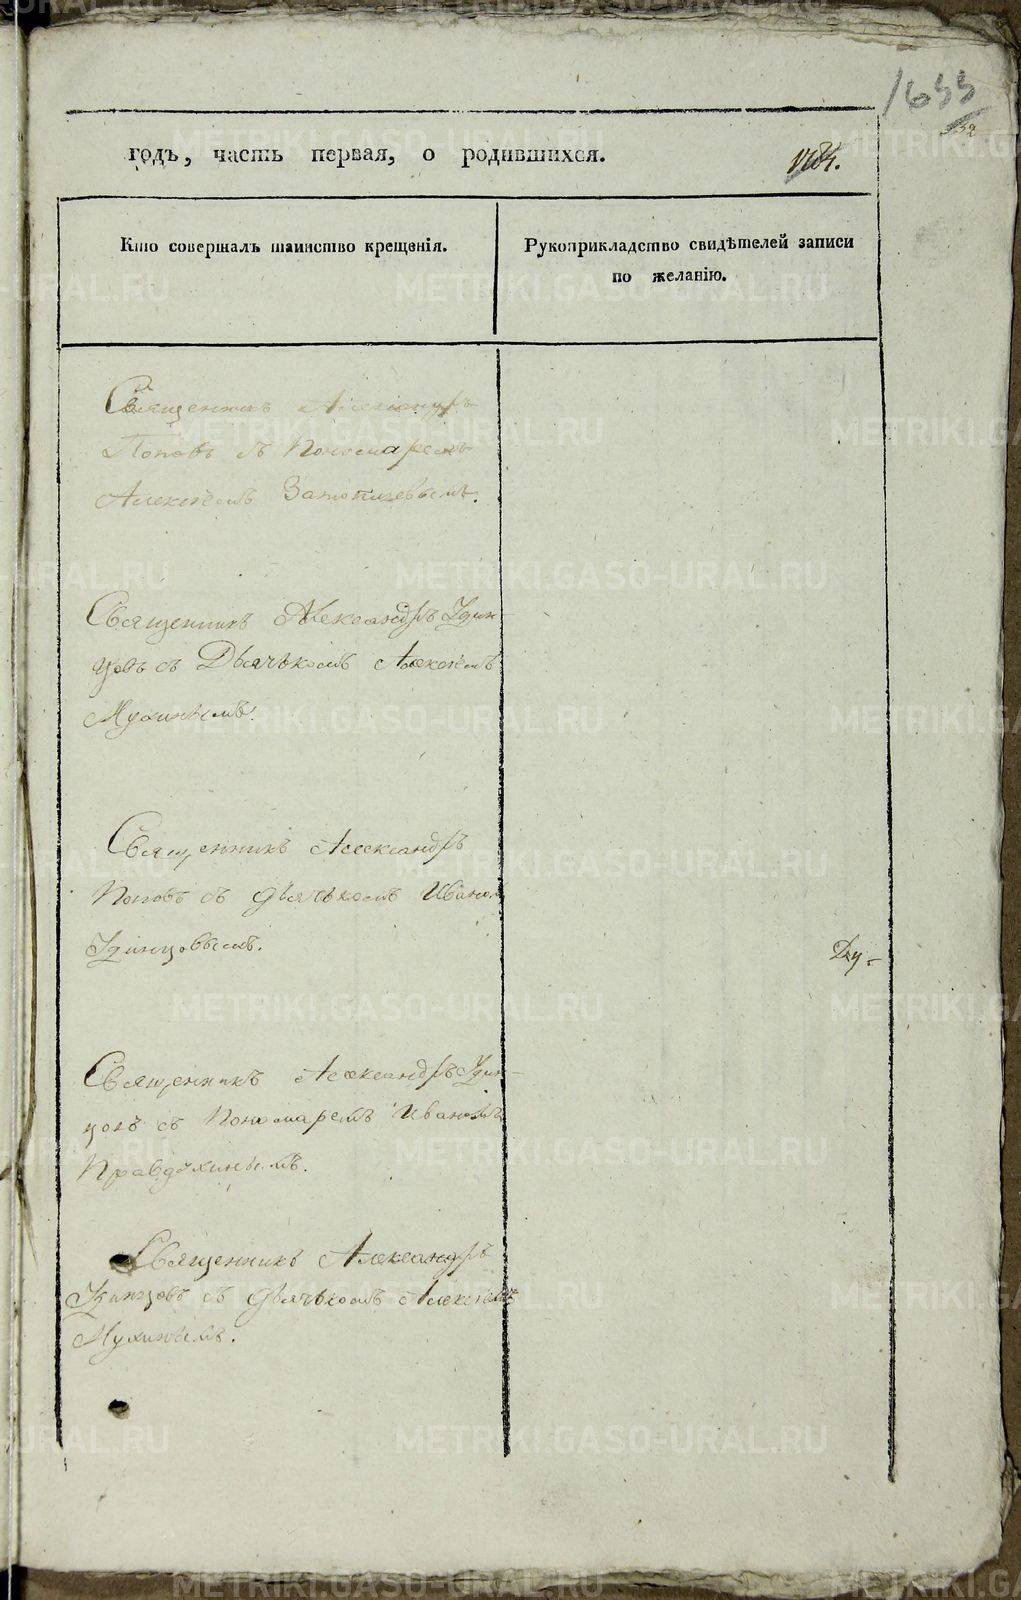 1633
годъ, часть первая, о родившихся.
Кто совершалъ таинство крещенія.
Рукоприкладство свидѣтелей записи
по желанію.
Священникъ Александръ
Поповъ съ Пономаремъ
Алексѣемъ
Священникъ Александръ Удин-
цовъ съ Дьячькомъ Алексѣемъ
Мухинымъ.
Священникъ Александръ
Поповъ съ дьячькомъ Иваном
Удинцовымъ.
Ду-
Священникъ Александръ Удин-
цовъ съ Пономаремъ Иваномъ
Правдухинымъ.
Священникъ Александръ
Удинцовъ съ дьячькомъ Алексѣемъ
Мухинымъ.
METRIKI.GASO-URAL.RU